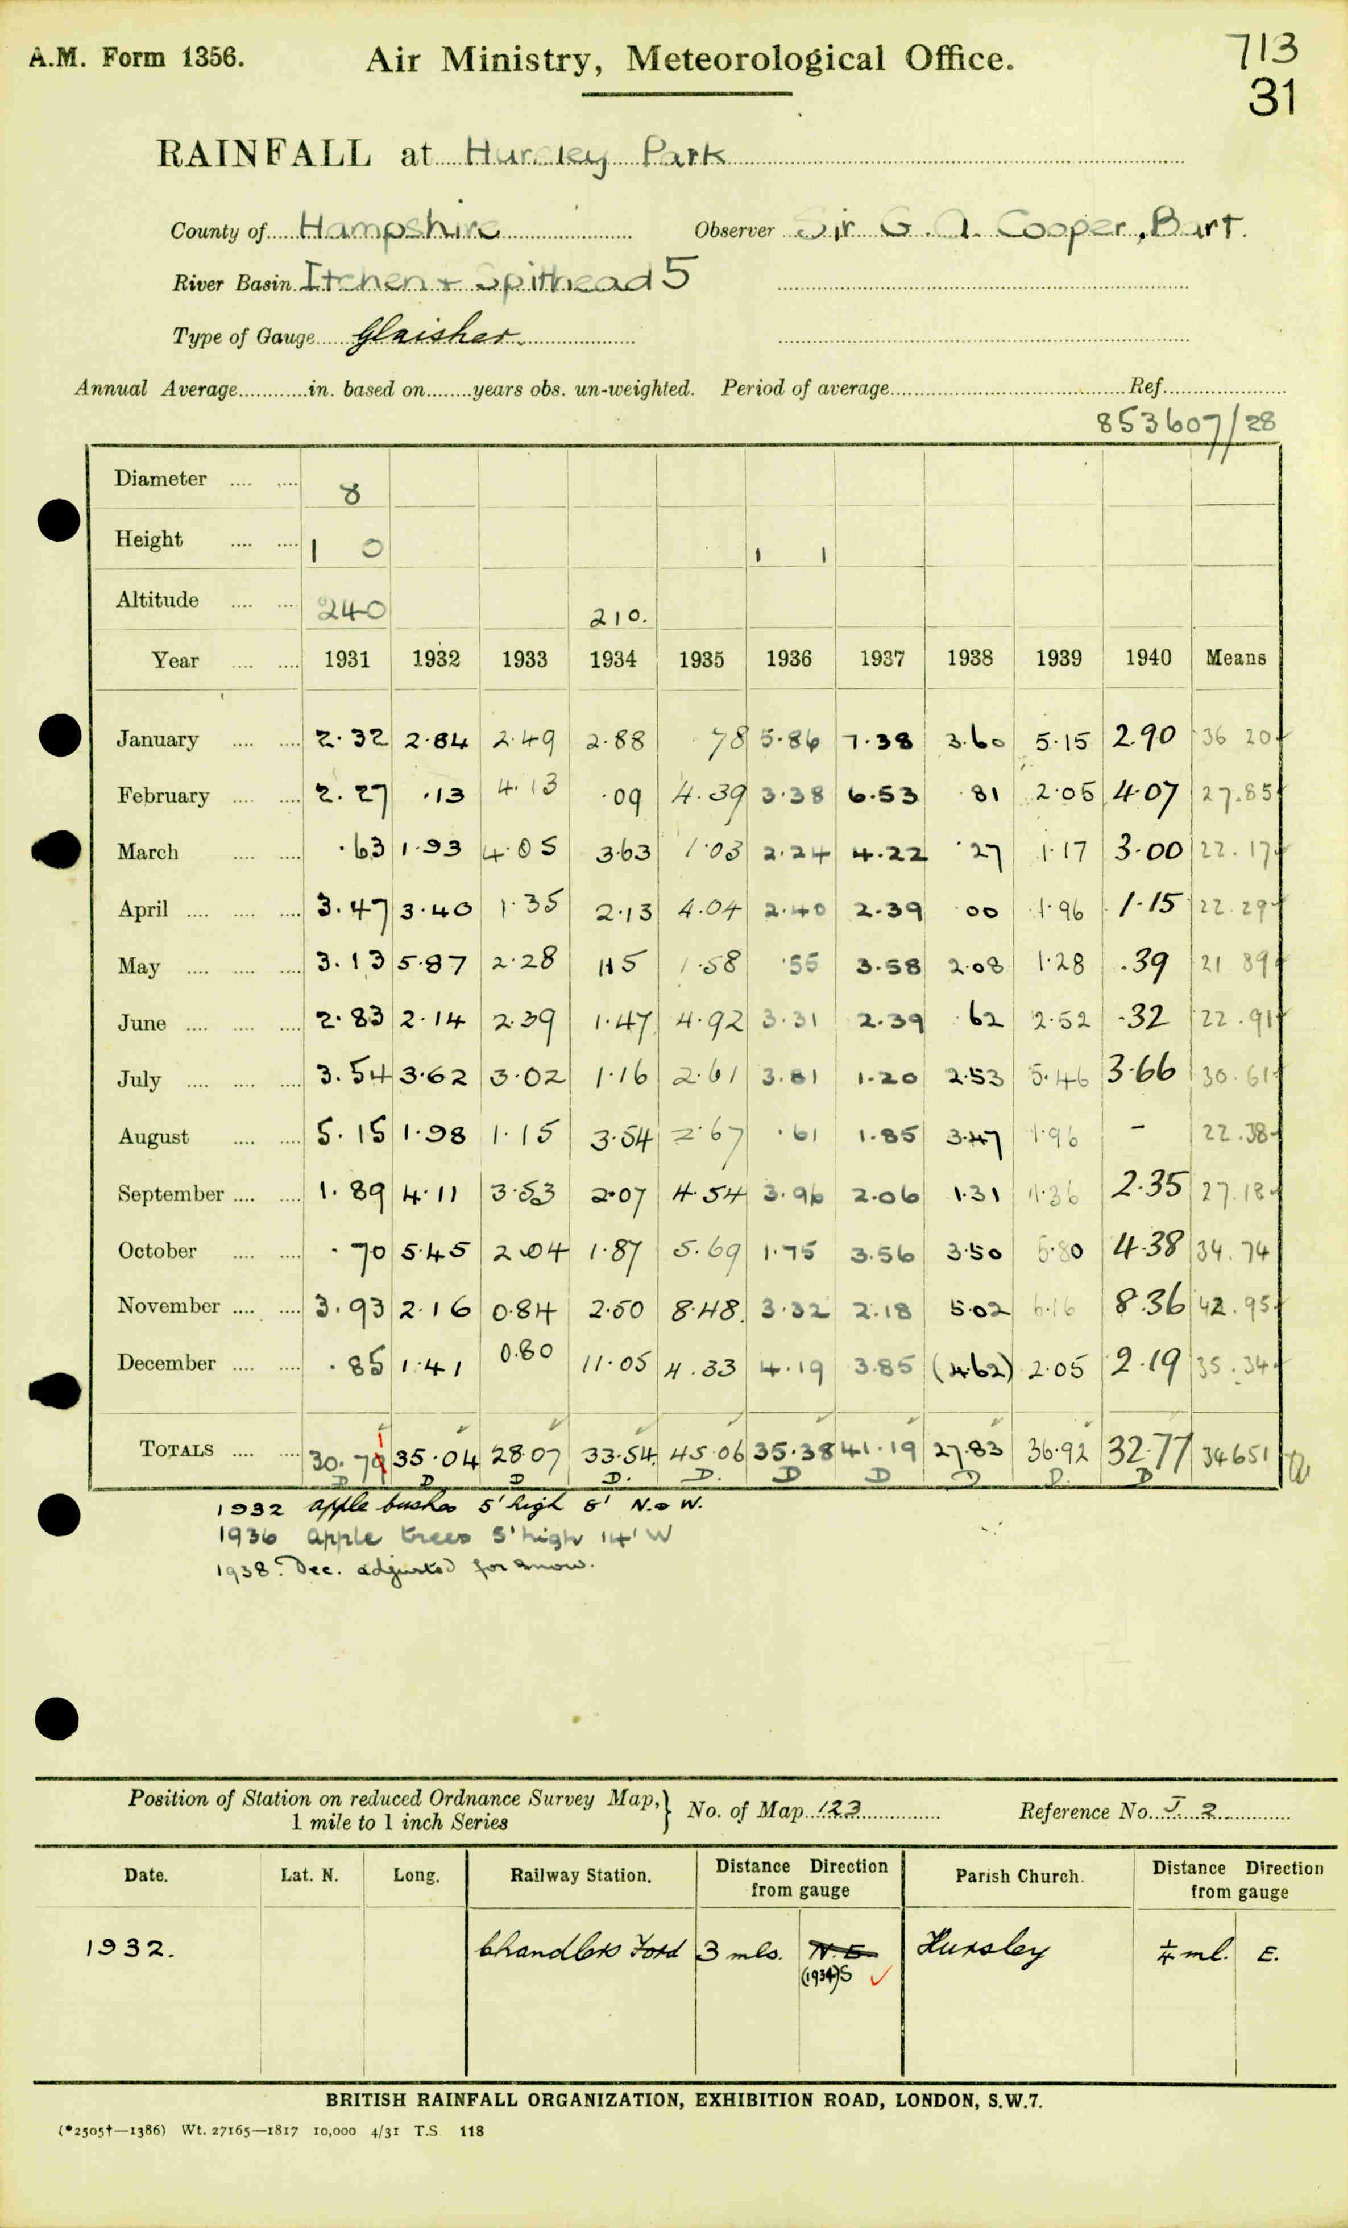 A.M. Form 1356. Air Ministry, Meteorological Office. 713
31
RAINFALL at Hursley Park
County of Hampshire Observer Sir G. A. Cooper, Bart.
River Basin Itchen + Spithead 5
Type of Gauge Glaisher.
Annual Average in. based on years obs. un-weighted. Period of average Ref.
853607/28
Diameter 8
Height 1 0 1 1
Altitude 240 210.
Year 1931 1932 1933 1934 1935 1936 1937 1938 1939 1940 Means
January 2.32 2.84 2.49 2.88 78 5.86 7.38 3.60 5.15 2.90 36 20
February 2.27 .13 4.13 .09 4.39 3.38 6.53 .81 2.05 4.07 27.85
March .63 1.93 4.05 3.63 1.03 2.24 4.22 .27 1.17 3.00 22.17
April 3.47 3.40 1.35 2.13 4.04 2.40 2.39 00 1.96 1.15 22.29
May 3.13 5.87 2.28 1.15 1.58 .55 3.58 2.08 1.28 .39 21 89
June 2.83 2.14 2.39 1.47 4.92 3.31 2.39 .62 2.52 .32 22.91
July 3.54 3.62 3.02 1.16 2.61 3.81 1.20 2.53 5.46 3.66 30.61
August 5.15 1.98 1.15 3.54 2.67 .61 1.85 3.47 1.96 - 22.38
September 1.89 4.11 3.53 2.07 4.54 3.96 2.06 1.31 1.36 2.35 27.18
October .70 5.45 2.04 1.87 5.69 1.75 3.56 3.50 5.80 4.38 34.74
November 3.93 2.16 0.84 2.50 8.48 3.32 2.18 5.02 6.16 8.36 42.95
December .85 1.41 0.80 11.05 4.33 4.19 3.85 (4.62) 2.05 2.19 35.34
TOTALS 30.71 35.04 28.07 33.54 45.06 35.38 41.19 27.83 36.92 32.77 34651
D D D D. D. D D D D. D
1932 apple bushes 5' high 8' N. & W.
1936 apple trees 5' high 14' W
1938. Dec. adjusted for snow.
Position of Station on reduced Ordnance Survey Map,} No. of Map 123 Reference No. J. 2
1 mile to 1 inch Series
Date. Lat. N. Long. Railway Station. Distance Direction from gauge Parish Church. Distance Direction from gauge
1932. Chandlers Ford 3 mls. N.E. Hursley 1/4 ml. E.
(1934) S
BRITISH RAINFALL ORGANIZATION, EXHIBITION ROAD, LONDON, S.W.7.
(*2505†—1386) Wt. 27165—1817 10,000 4/31 T.S 118